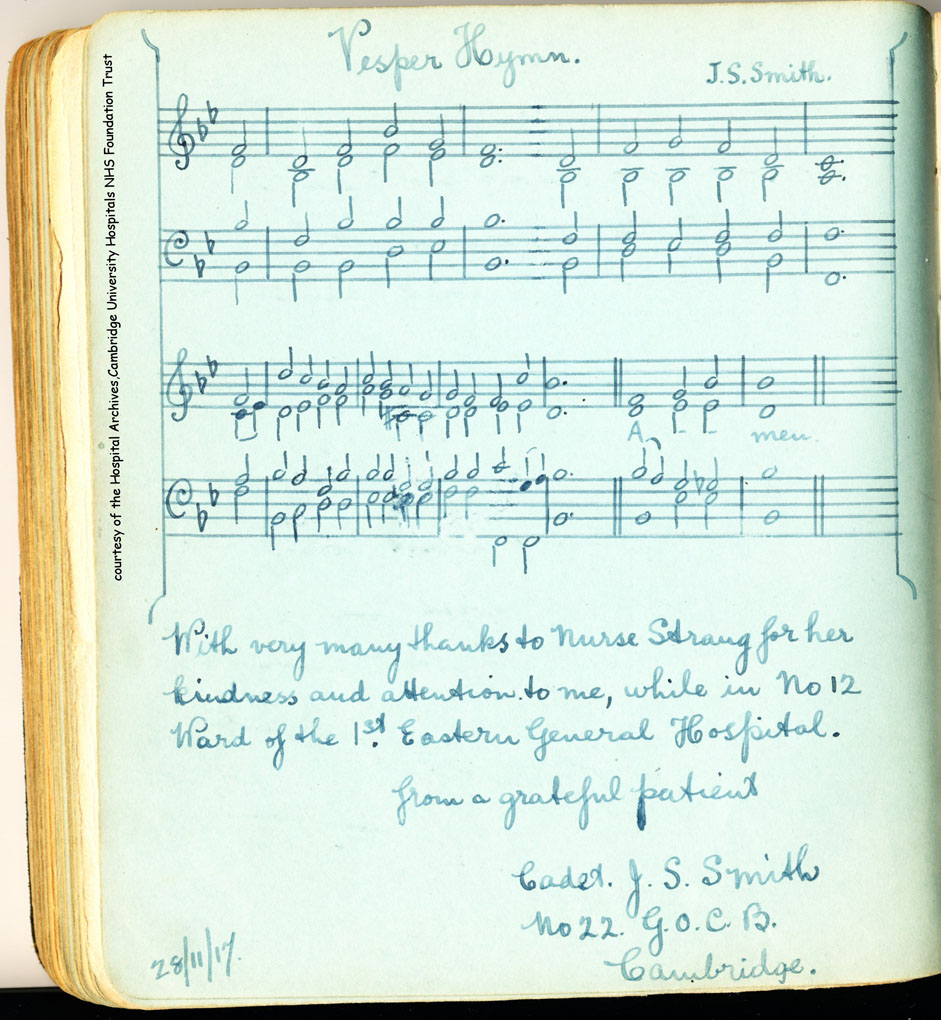 Vesper Hymn.
J.S. Smith.
A - - men
With very many thanks to Nurse Strang for her
kindness and attention to me, while in No 12
Ward of the 1st. Eastern General Hospital.
from a grateful patient
Cadet. J. S. Smith
No 22. G.O.C.B.
Cambridge.
28/11/17.
courtesy of the Hospital Archives,Cambridge University Hospitals NHS Foundation Trust